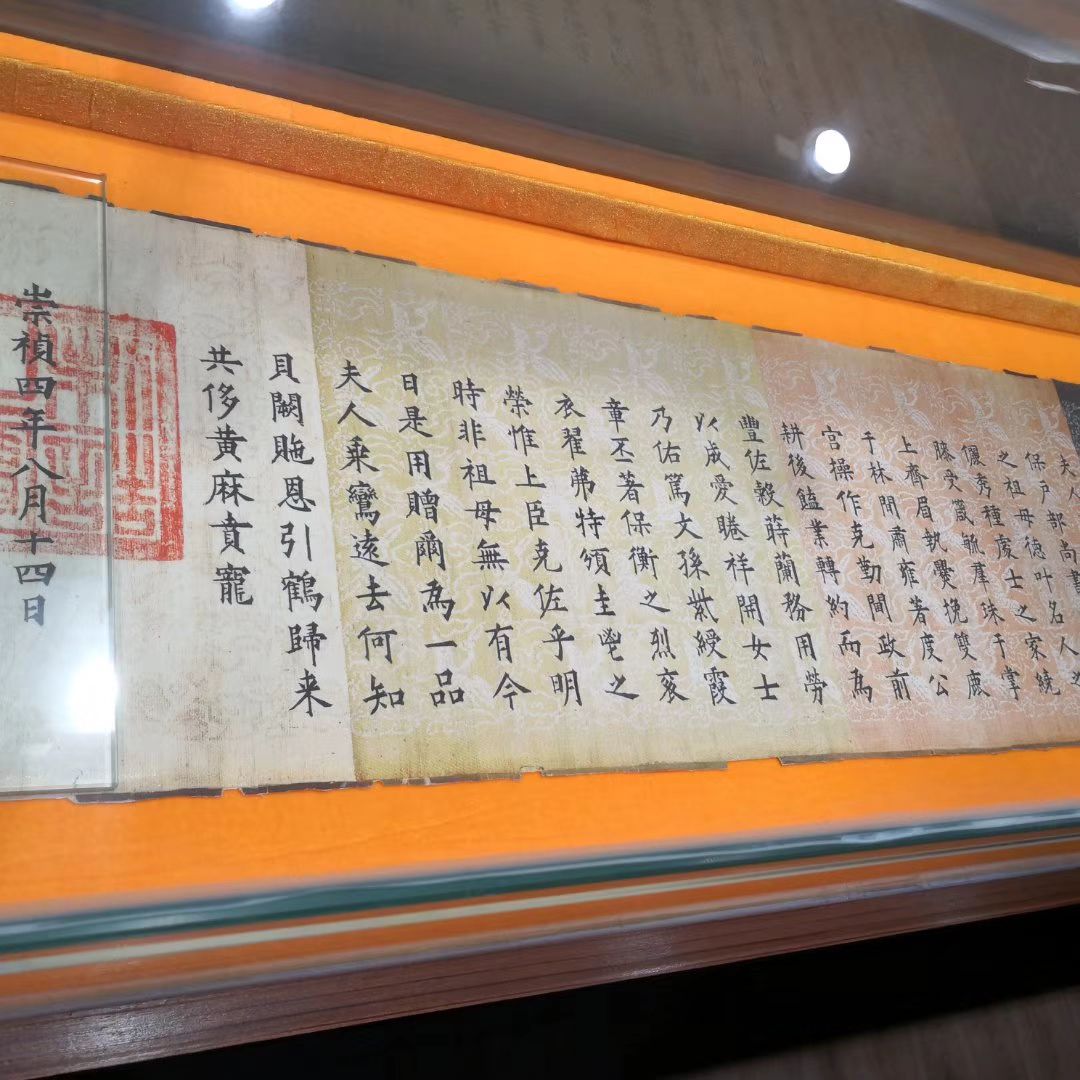 夫人
保戶部尚書
之祖母德叶名人之
儷秀種慶士之家統
滕受箴毓羣珠千掌
上齊眉執爨挽雙鹿
千林閒肅雍著度公
宮操作克勤間政前
耕後饁業轉約而為
豐佐穀蘭務用勞
以成愛睠祥開女士
乃佑篤文孫紫綬霞
章丕著保衡之烈袞
衣翟茀特頒圭鬯之
榮惟上臣克佐乎明
時非祖母無以有今
日是用贈爾為一品
夫人乘鸞遠去何知
貝闕貤恩引鶴歸来
共侈黃麻賁寵
崇禎四年八月十四日